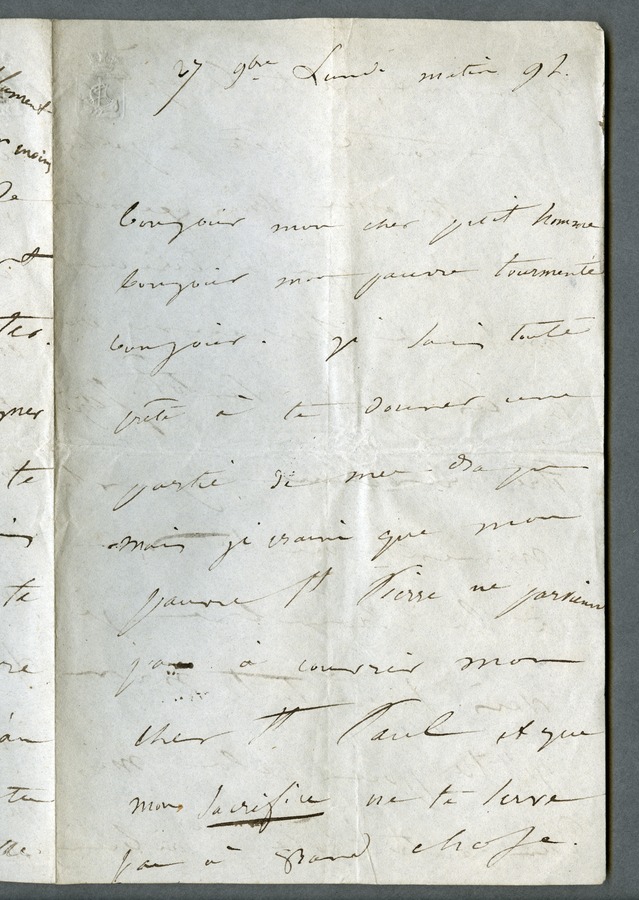 27 9bre Lundi matin 9 h.
bonjour mon cher petit homme
bonjour mon pauvre tourmenté
bonjour. je suis toute
prête à te donner une
partie de mes draps
mais je crains que mon
pauvre St Pierre ne parvienne
pas à couvrir mon
cher St Paul et que
mon sacrifice ne te serve
pas à grand chose.